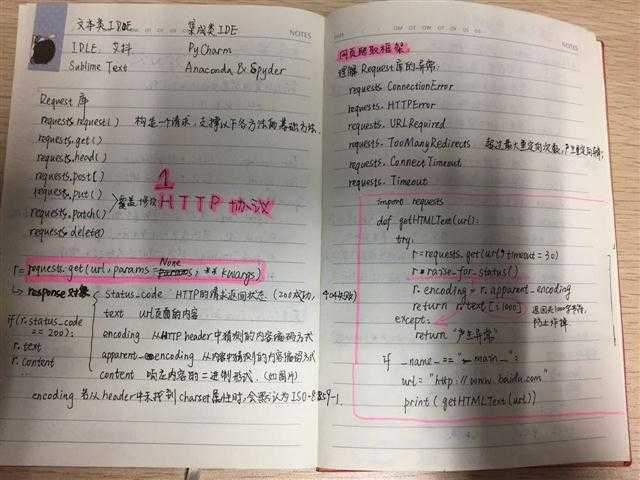 NOTES
文本类IDE 集成类IDE
IDLE 支持 PyCharm
Sublime Text Anaconda & Spyder
Request 库
requests.request() 构造一个请求,支撑以下各方法的基础方法.
requests.get()
requests.head()
requests.post()
requests.put() 覆盖 修改
requests.patch()
requests.delete()
1
HTTP 协议
r = requests.get(url, params = None, **kwargs)
↳ response对象
status_code HTTP的请求返回状态 (200成功, 404失败)
text url页面的内容
encoding 从HTTP header中猜测的内容编码方式
apparent_encoding 从内容中猜测的内容编码方式
content 响应内容的二进制形式. (如图片)
if(r.status_code
== 200):
r.text
r.content
encoding 若从header中未找到charset属性时,会默认为ISO-8859-1.
NOTES
网页爬取框架
理解 Request库的异常:
requests.ConnectionError
requests.HTTPError
requests.URLRequired
requests.TooManyRedirects 超过最大重定向次数,产生重定向异常
requests.ConnectTimeout
requests.Timeout
import requests
def getHTMLText(url):
try:
r = requests.get(url, timeout = 30)
r.raise_for_status()
r.encoding = r.apparent_encoding
return r.text[:1000] 返回头1000字符,
except: 防止炸掉
return "产生异常"
if __name__ == "__main__":
url = "http://www.baidu.com"
print(getHTMLText(url))